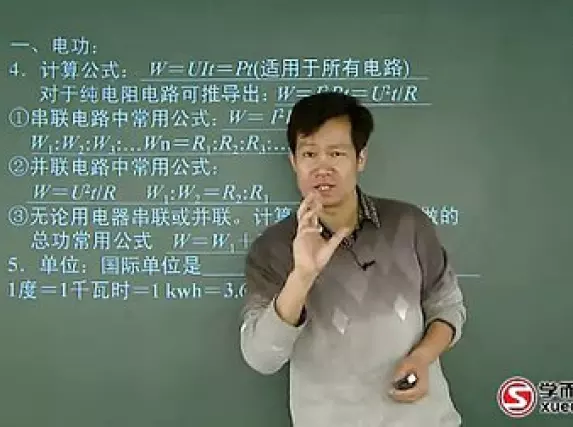 一、电功：
4．计算公式：W=UIt=Pt(适用于所有电路)
对于纯电阻电路可推导出：W=I²Rt=U²t/R
①串联电路中常用公式：W=I²
W₁:W₂:W₃:…Wn=R₁:R₂:R₃:…
②并联电路中常用公式：
W=U²t/R W₁:W₂=R₂:R₁
③无论用电器串联或并联。计算 做的
总功常用公式 W=W₁+
5．单位：国际单位是
1度=1千瓦时=1 kwh=3.6
S 学而
xue